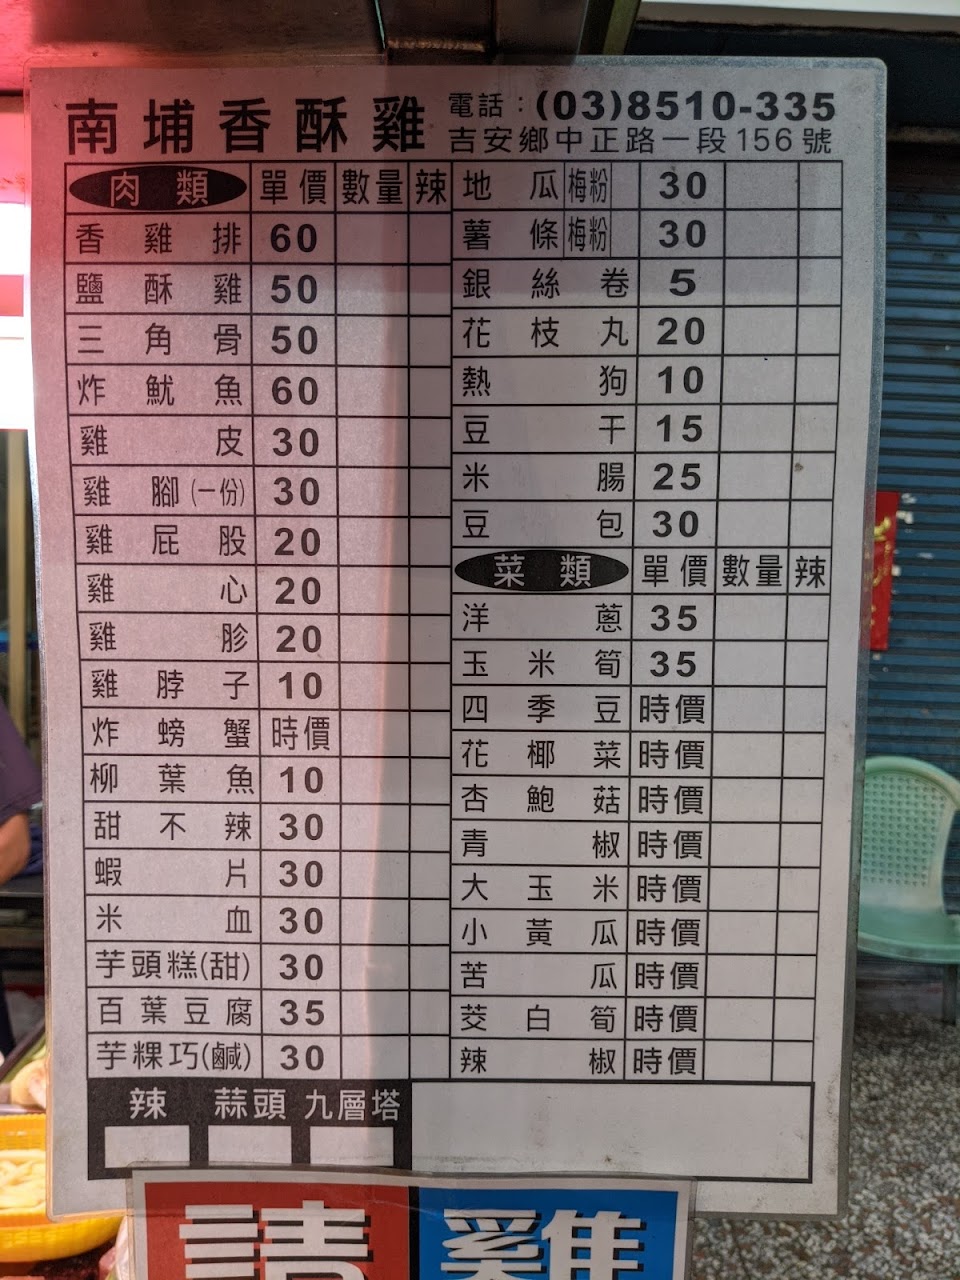 南埔香酥雞
電話：(03)8510-335
吉安鄉中正路一段156號
肉類 單價 數量 辣
香雞排 60
鹽酥雞 50
三角骨 50
炸魷魚 60
雞皮 30
雞腳(一份) 30
雞屁股 20
雞心 20
雞胗 20
雞脖子 10
炸螃蟹 時價
柳葉魚 10
甜不辣 30
蝦片 30
米血 30
芋頭糕(甜) 30
百葉豆腐 35
芋粿巧(鹹) 30
地瓜 梅粉 30
薯條 梅粉 30
銀絲卷 5
花枝丸 20
熱狗 10
豆干 15
米腸 25
豆包 30
菜類 單價 數量 辣
洋蔥 35
玉米筍 35
四季豆 時價
花椰菜 時價
杏鮑菇 時價
青椒 時價
大玉米 時價
小黃瓜 時價
苦瓜 時價
茭白筍 時價
辣椒 時價
辣 蒜頭 九層塔
請 雞